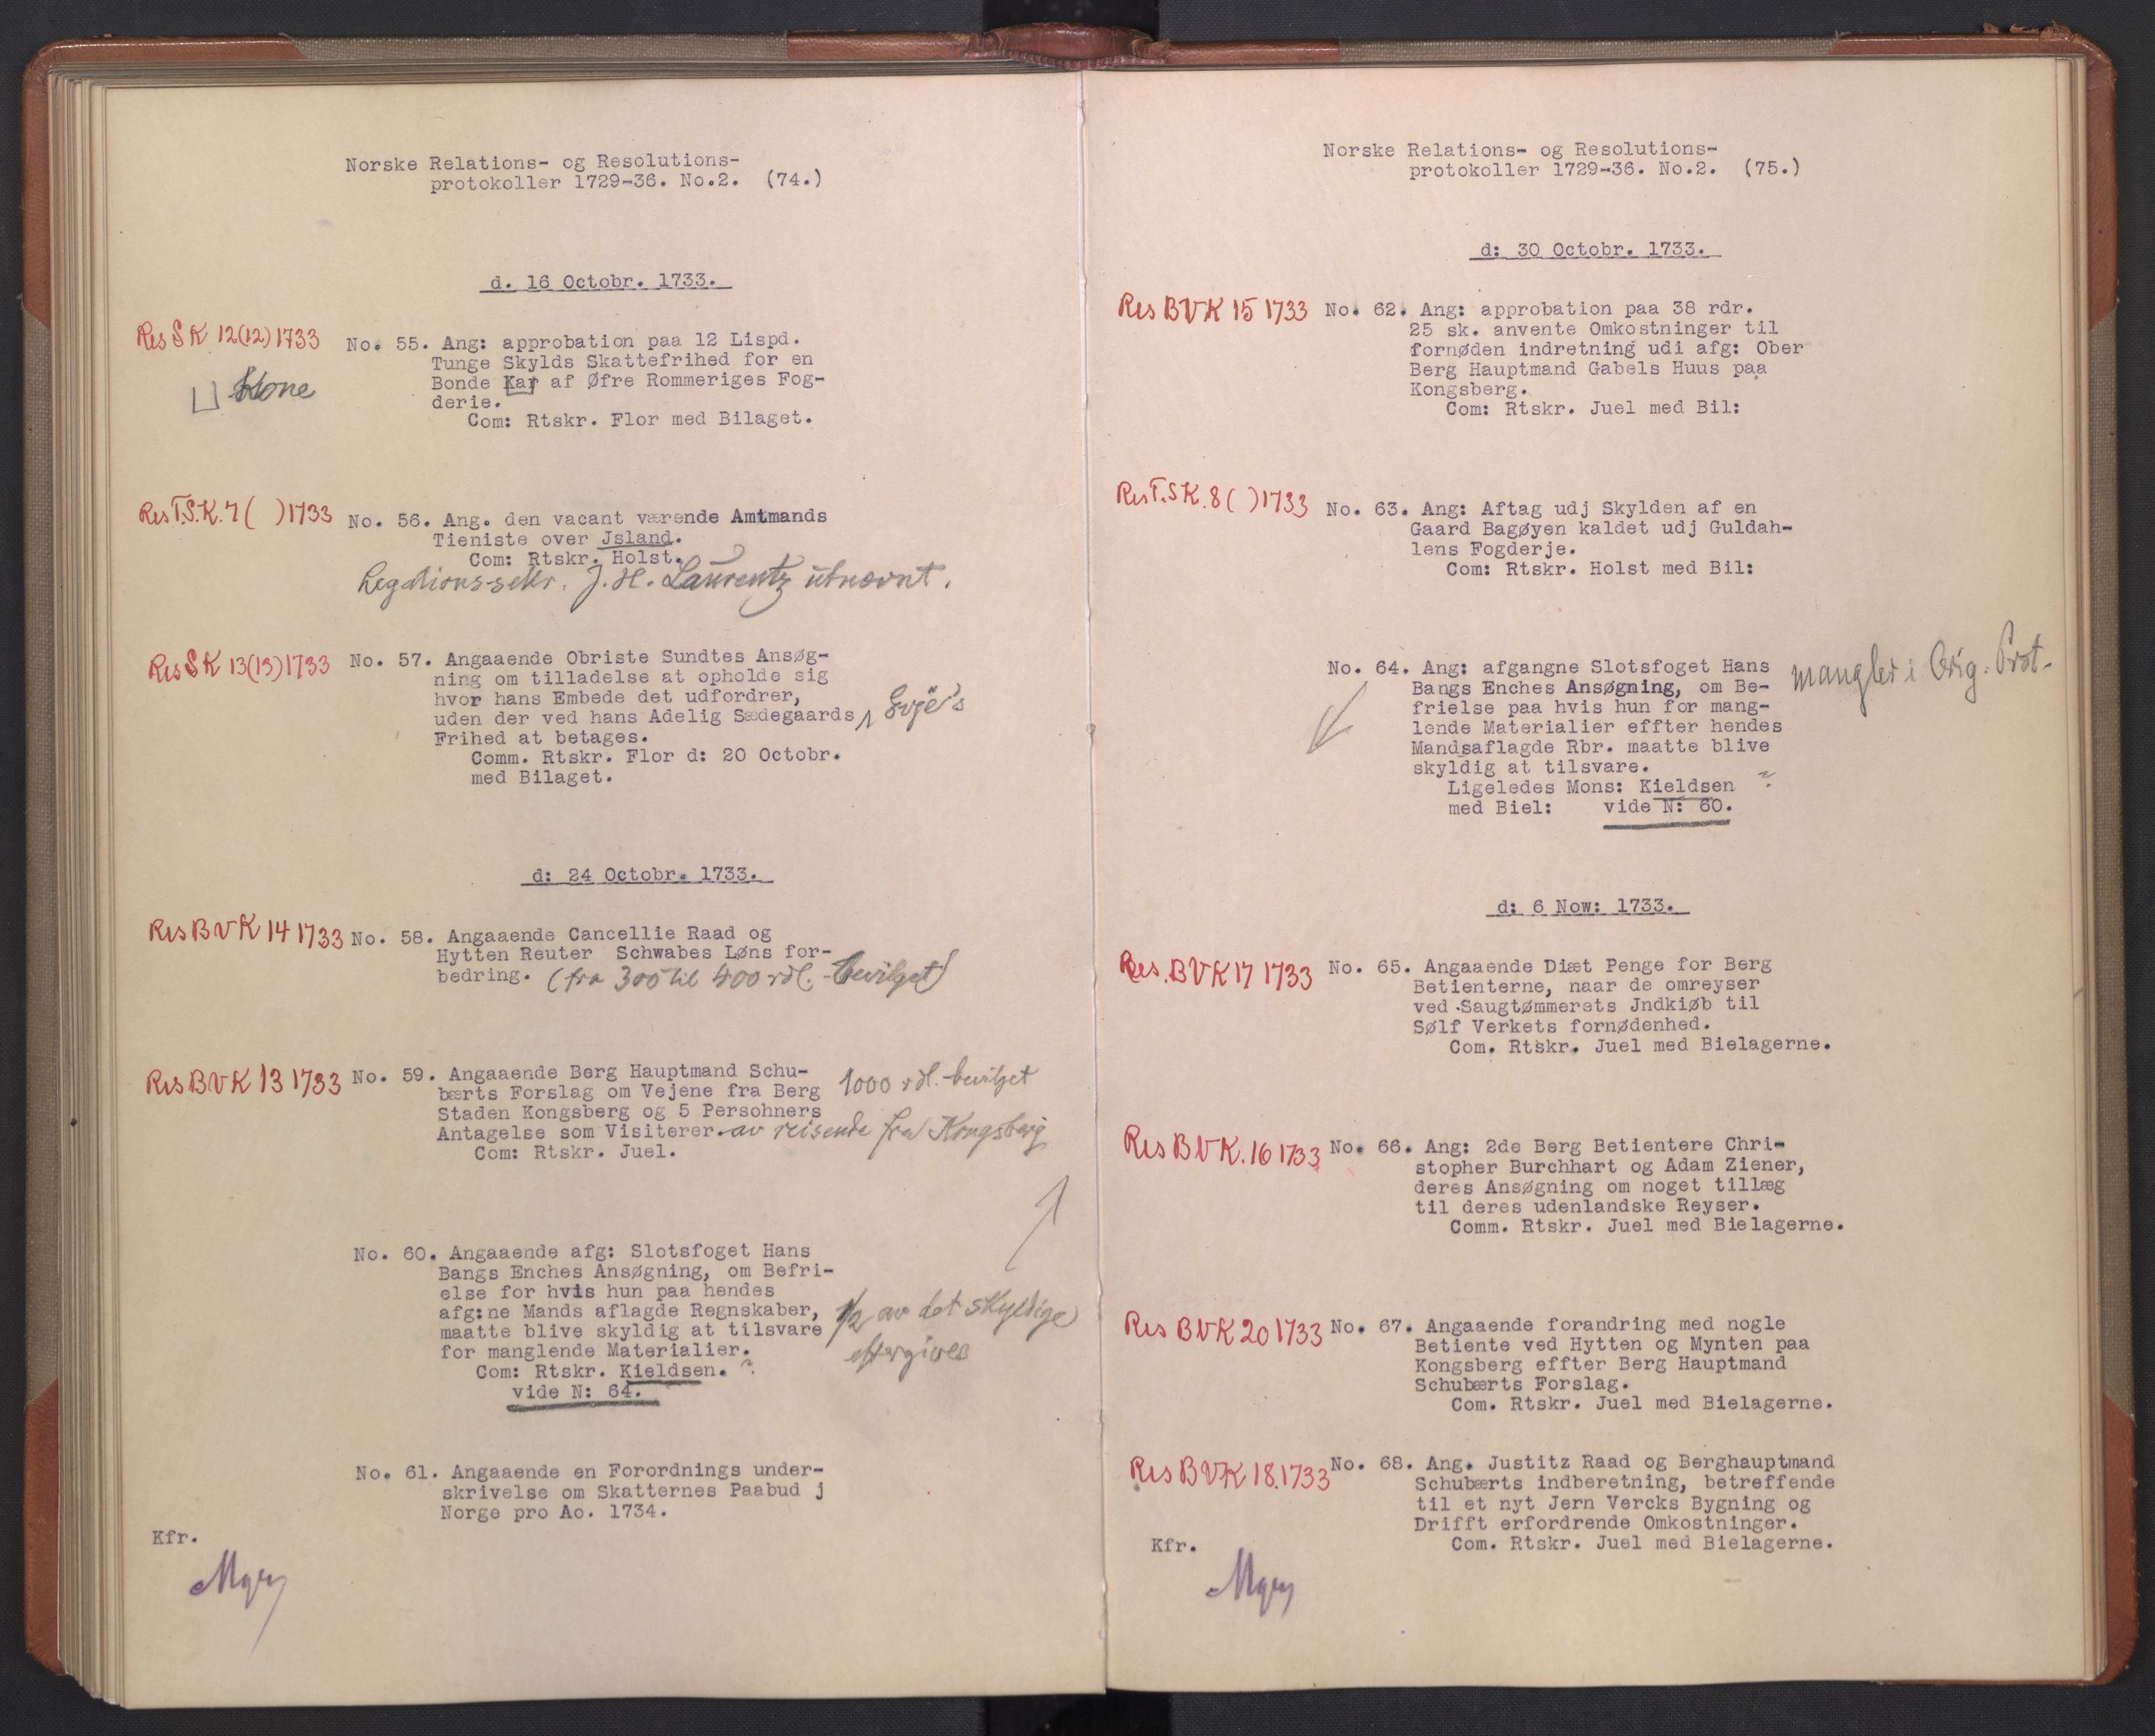 Norske Relations- og Resolutions-
protokoller 1729-36. No.2. (74.)
d. 16 Octobr. 1733.
Res S K 12(12) 1733
No. 55. Ang: approbation paa 12 Lispd.
Tunge Skylds Skattefrihed for en
Bonde Kar af Øfre Rommeriges Fog-
derie.
Kone
Com: Rtskr. Flor med Bilaget.
Res T.S.K. 7 ( ) 1733
No. 56. Ang. den vacant værende Amtmands
Tieniste over Jsland.
Com: Rtskr. Holst.
Legations-sekr. J. H. Laurentz utnævnt.
Res S K 13(13) 1733
No. 57. Angaaende Obriste Sundtes Ansøg-
ning om tilladelse at opholde sig
hvor hans Embede det udfordrer,
uden der ved hans Adelig Sædegaards
Frihed at betages.
Comm. Rtskr. Flor d: 20 Octobr.
med Bilaget.
d: 24 Octobr. 1733.
Res B V K 14 1733
No. 58. Angaaende Cancellie Raad og
Hytten Reuter Schwabes Løns for-
bedring. (fra 300 til 400 rdl. bevilget)
Res B V K 13 1733
No. 59. Angaaende Berg Hauptmand Schu-
bærts Forslag om Vejene fra Berg 1000 rdl. bevilget
Staden Kongsberg og 5 Persohners
Antagelse som Visiterer av reisende fra Kongsberg
Com: Rtskr. Juel.
No. 60. Angaaende afg: Slotsfoget Hans
Bangs Enches Ansøgning, om Befri-
else for hvis hun paa hendes
afg:ne Mands aflagde Regnskaber, 1/2 av det skyldige
maatte blive skyldig at tilsvare
for manglende Materialier. eftergives
Com: Rtskr. Kieldsen. ?
vide N: 64.
No. 61. Angaaende en Forordnings under-
skrivelse om Skatternes Paabud j
Norge pro Ao. 1734.
Kfr.
Norske Relations- og Resolutions-
protokoller 1729-36. No.2. (75.)
d: 30 Octobr. 1733.
Res B V K 15 1733
No. 62. Ang: approbation paa 38 rdr.
25 sk. anvente Omkostninger til
fornøden indretning udi afg: Ober
Berg Hauptmand Gabels Huus paa
Kongsberg.
Com: Rtskr. Juel med Bil:
Res T.S K. 8 ( ) 1733
No. 63. Ang: Aftag udj Skylden af en
Gaard Bagøyen kaldet udj Guldah-
lens Fogderje.
Com: Rtskr. Holst med Bil:
No. 64. Ang: afgangne Slotsfoget Hans mangler i Orig. Prot.
Bangs Enches Ansøgning, om Be-
frielse paa hvis hun for mang-
lende Materialier effter hendes
Mandsaflagde Rbr. maatte blive
skyldig at tilsvare.
Ligeledes Mons: Kieldsen ?
med Biel: vide N: 60.
d: 6 Now: 1733.
Res. B V K 17 1733
No. 65. Angaaende Diæt Penge for Berg
Betienterne, naar de omreyser
ved Saugtømmerets Jndkiøb til
Sølf Verkets fornødenhed.
Com. Rtskr. Juel med Bielagerne.
Res B V K. 16 1733
No. 66. Ang: 2de Berg Betientere Chri-
stopher Burchhart og Adam Ziener,
deres Ansøgning om noget tillæg
til deres udenlandske Reyser.
Comm. Rtskr. Juel med Bielagerne.
Res B V K 20 1733
No. 67. Angaaende forandring med nogle
Betiente ved Hytten og Mynten paa
Kongsberg effter Berg Hauptmand
Schubærts Forslag.
Com. Rtskr. Juel med Bielagerne.
Res B V K 18. 1733
No. 68. Ang. Justitz Raad og Berghauptmand
Schubærts indberetning, betreffende
til et nyt Jern Vercks Bygning og
Drifft erfordrende Omkostninger.
Com. Rtskr. Juel med Bielagerne.
Kfr.